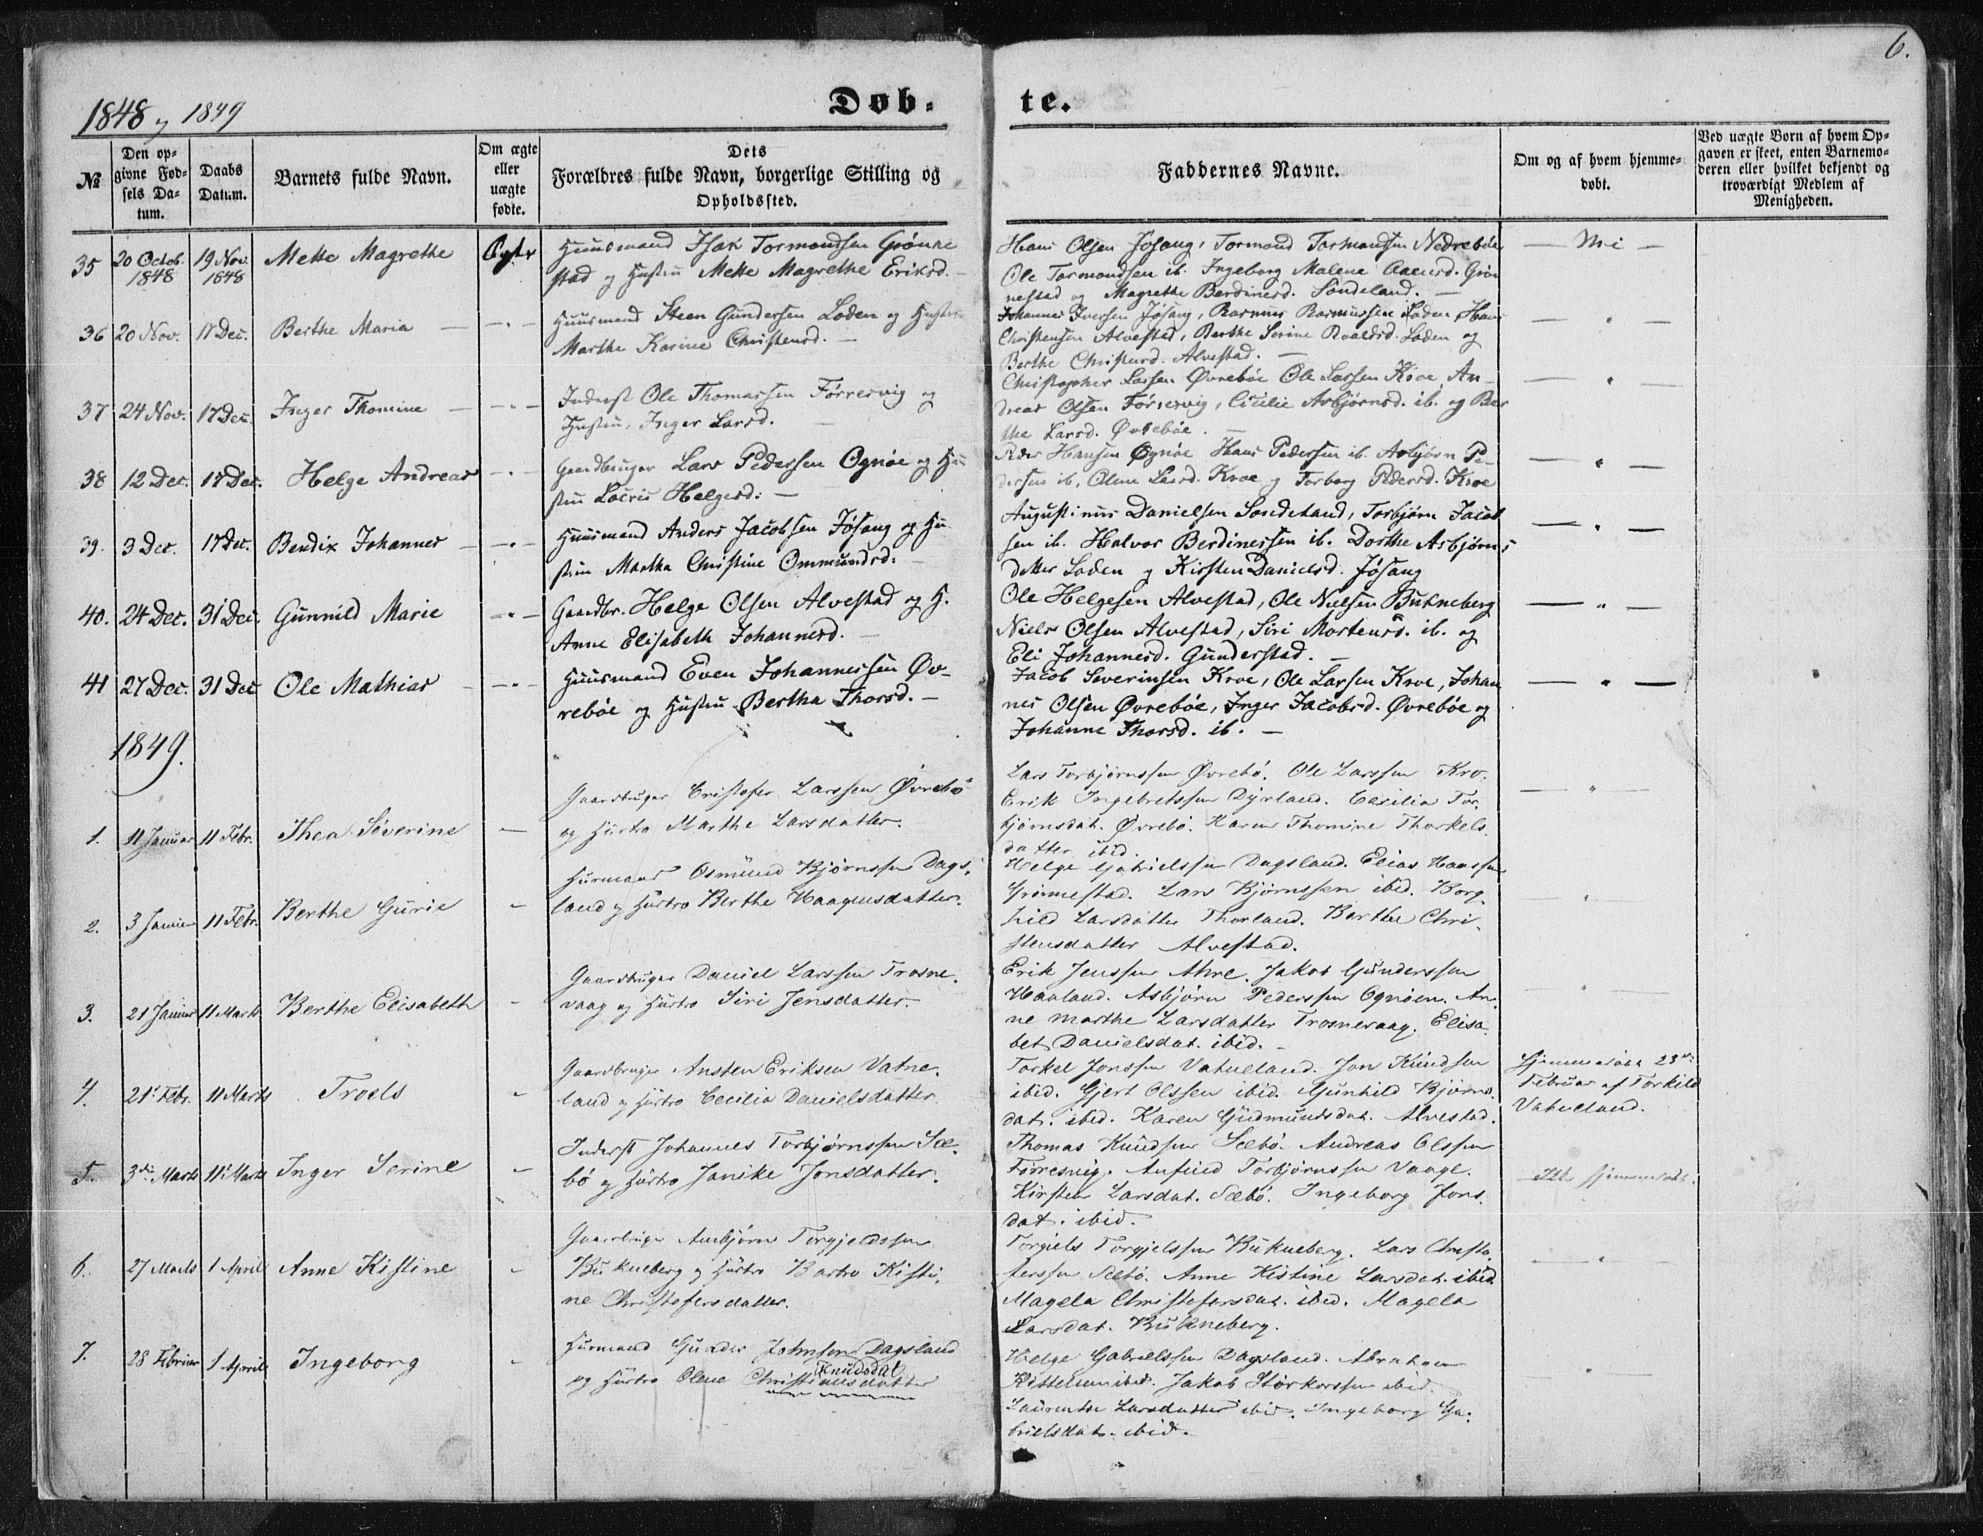 6.
1848 og 1849
Døb-
te.
№
Den op-
givne Fød-
sels Da-
tum.
Daabs
Datum.
Barnets fulde Navn.
Om ægte
eller
uægte
fødte.
Dets
Forældres fulde Navn, borgerlige Stilling og
Opholdssted.
Faddernes Navne.
Om og af hvem hjemme-
døbt.
Ved uægte Børn af hvem Op-
gaven er skeet, enten Barnemo-
deren eller hvilket bekjendt og
troværdigt Medlem af
Menigheden.
35 20 Octob. 1848 19 Nov. 1848 Mette Magrethe Ægte
Huusmand Isak Tormondsen Grønne
stad og Hustru Mette Magrethe Eriksd. —
Hans Olsen Jøsang, Tormond Tormondsen Nedrebøe
Ole Tormondsen ib. Ingeborg Malene Aanersd. Grøn
nestad og Magrethe Berdinesd. Søndeland. —
36 20 Nov. 17 Dec. Berthe Maria — — „ —
Huusmand Steen Gundersen Loden og Hustru
Marthe Karine Christensd. —
Johannes Iversen Jøsang, Rasmus Rasmussen Loden Hans
Christensen Alvestad, Berthe Serine Roaldsd. Loden og
Berthe Christensd. Alvestad. —
— „ —
37 24 Nov. 17 Dec. Inger Thomine — — „ —
Inderst Ole Thomassen Førresvig og
Hustru, Inger Larsd. —
Christopher Larsen Øvrebøe Ole Larsen Kroe, An-
dreas Olsen Førresvig, Cicilie Asbjørnsd. ib. og Ber
the Larsd. Øvrebøe. —
— „ —
38 12 Dec. 17 Dec. Helge Andreas — „ —
Gaardbruger Lars Pedersen Ognøe og Hu
stru Helgesd: —
Peder Hansen Ognøe Hans Pedersen ib. Asbjørn Pe-
dersen ib. Olene Larsd. Kroe og Torborg Pedersd. Kroe
— „ —
39. 3 Dec. 17 Dec. Bendix Johannes — — „ —
Huusmand Anders Jacobsen Jøsang og Hu
stru Martha Christine Ommundsd. —
Augustinus Danielsen Søndeland, Torbjørn Jacob
sen ib. Halvor Berdinessen ib. Dorthe Asbjørns
detter Loden og Kirsten Danielsd. Jøsang
— „ —
40. 24 Dec. 31 Dec. Gunnild Marie — „ —
Gaardbr. Helge Olsen Alvestad og H.
Anne Elisabeth Johannesd. —
Ole Helgesen Alvestad, Ole Nielsen Bukneberg
Niels Olsen Alvestad, Siri Mortensd. ib. og
Eli Johannesd. Gunderstad. —
— „ —
41 27 Dec. 31 Dec Ole Mathias — — „ —
Huusmand Even Johannessen Øv-
rebøe og Hustru Bertha Thorsd. —
Jacob Severinsen Kroe, Ole Larsen Kroe, Johan
nes Olsen Øvrebøe, Inger Jacobsd. Øvrebøe og
Johanne Thorsd. ib. —
— „ —
1849.
1. 11 Januar 11 Febr. Thea Severine —
Gaardbruger Cristofer Larssen Øvrebø
og Hustro Marthe Larsdatter.
Lars Torbjørnssen Øvrebø. Ole Larssen Kro.
Erik Ingebretssen Dyrland. Cecilia Tor.
bjørnsdat. Øvrebø. Karen Thomine Thorkels.
datter ibid.
— „ —
2. 3 Januar 11 Febr. Berthe Gurie —
Husmand Osmund Bjørnssen Dags.
land og Hustro Berthe Haagensdatter.
Helge Gabrielssen Dagsland. Elias Hanssen
Grønnestad. Lars Bjørnssen ibid. Borg.
hild Larsdatter Thorland. Berthe Chri.
stensdatter Alvestad.
— „ —
3. 21 Januar 11 Marts Berthe Elisabeth —
Gaardbruger Daniel Larssen Trosne.
vaag og Hustro Siri Jensdatter.
Erik Jenssen Ahre. Jakob Gunderssen
Haaland. Asbjørn Pederssen Ognøen. An.
ne Marthe Larsdatter Trosnevaag. Elisa.
bet Danielsdat. ibid. —
— „ —
4. 21 Febr. 11 Marts Troels —
Gaardbruger Ansten Eriksen Vatne.
land og Hustro Cecilia Danielsdatter
Torkel Jonssen Vatneland. Jon Knudsen
ibid. Gjert Olssen ibid. Gunhild Bjørns.
dat. ibid. Karen Gudmundsdat. Alvestad.
Hjemmedøbt 23de
Februar af Torkild
Vatneland.
5. 3die Marts 11 Marts Inger Serine —
Inderst Johannes Torbjørnssen Sæ.
bø og Hustro Janike Jonsdatter.
Thomas Knudsen Sæbø. Andreas Olssen
Førresvig. Anfind Torbjørnssen Vaage.
Kirsten Larsdat. Sæbø. Ingeborg Jons.
dat. ibid.
Ikke hjemmedøbt.
6. 27 Marts 1 April Anne Kistine —
Gaardbruger Asbjørn Torgjeldssen
Bukneberg og Hustro Kisti.
ne Christofersdatter.
Torgiels Torgjelssen Bukneberg. Lars Christo.
ferssen Sæbø. Anne Kistine Larsdat. ibid
Magela Christofersdat. ibid. Magela
Larsdat. Bukneberg.
— „ —
7. 28 Februar 1 April Ingeborg —
Husmand Gunder Johnsen Dagsland
og Hustro Olene Christiansdatter
Knudsdat
Helge Gabrielssen Dagsland. Abraham
Kittelsen ibid. Jakob Størkerssen ibid.
Laurentse Larsdatter ibid. Ingeborg Ga.
brielsdat. ibid.
— „ —